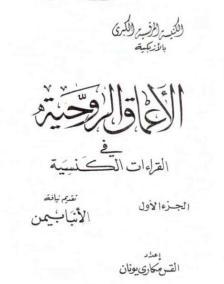 الكنيسة المرقسية الكبرى
بالأزبكية
الأعماق الروحية
في
القراءات الكنسية
الجزء الأول
تقديم نيافة
الأنبا بيمن
إعداد
القس مكاري يونان